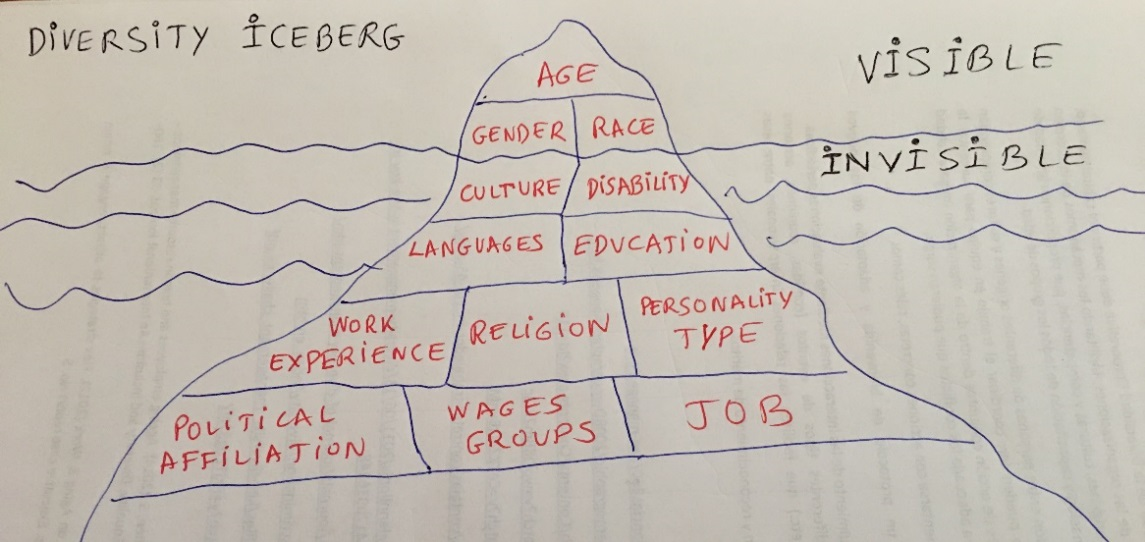 DIVERSITY ICEBERG
VISIBLE
AGE
GENDER RACE
INVISIBLE
CULTURE DISABILITY
LANGUAGES EDUCATION
WORK
EXPERIENCE
RELIGION
PERSONALITY
TYPE
POLITICAL
AFFILIATION
WAGES
GROUPS
JOB